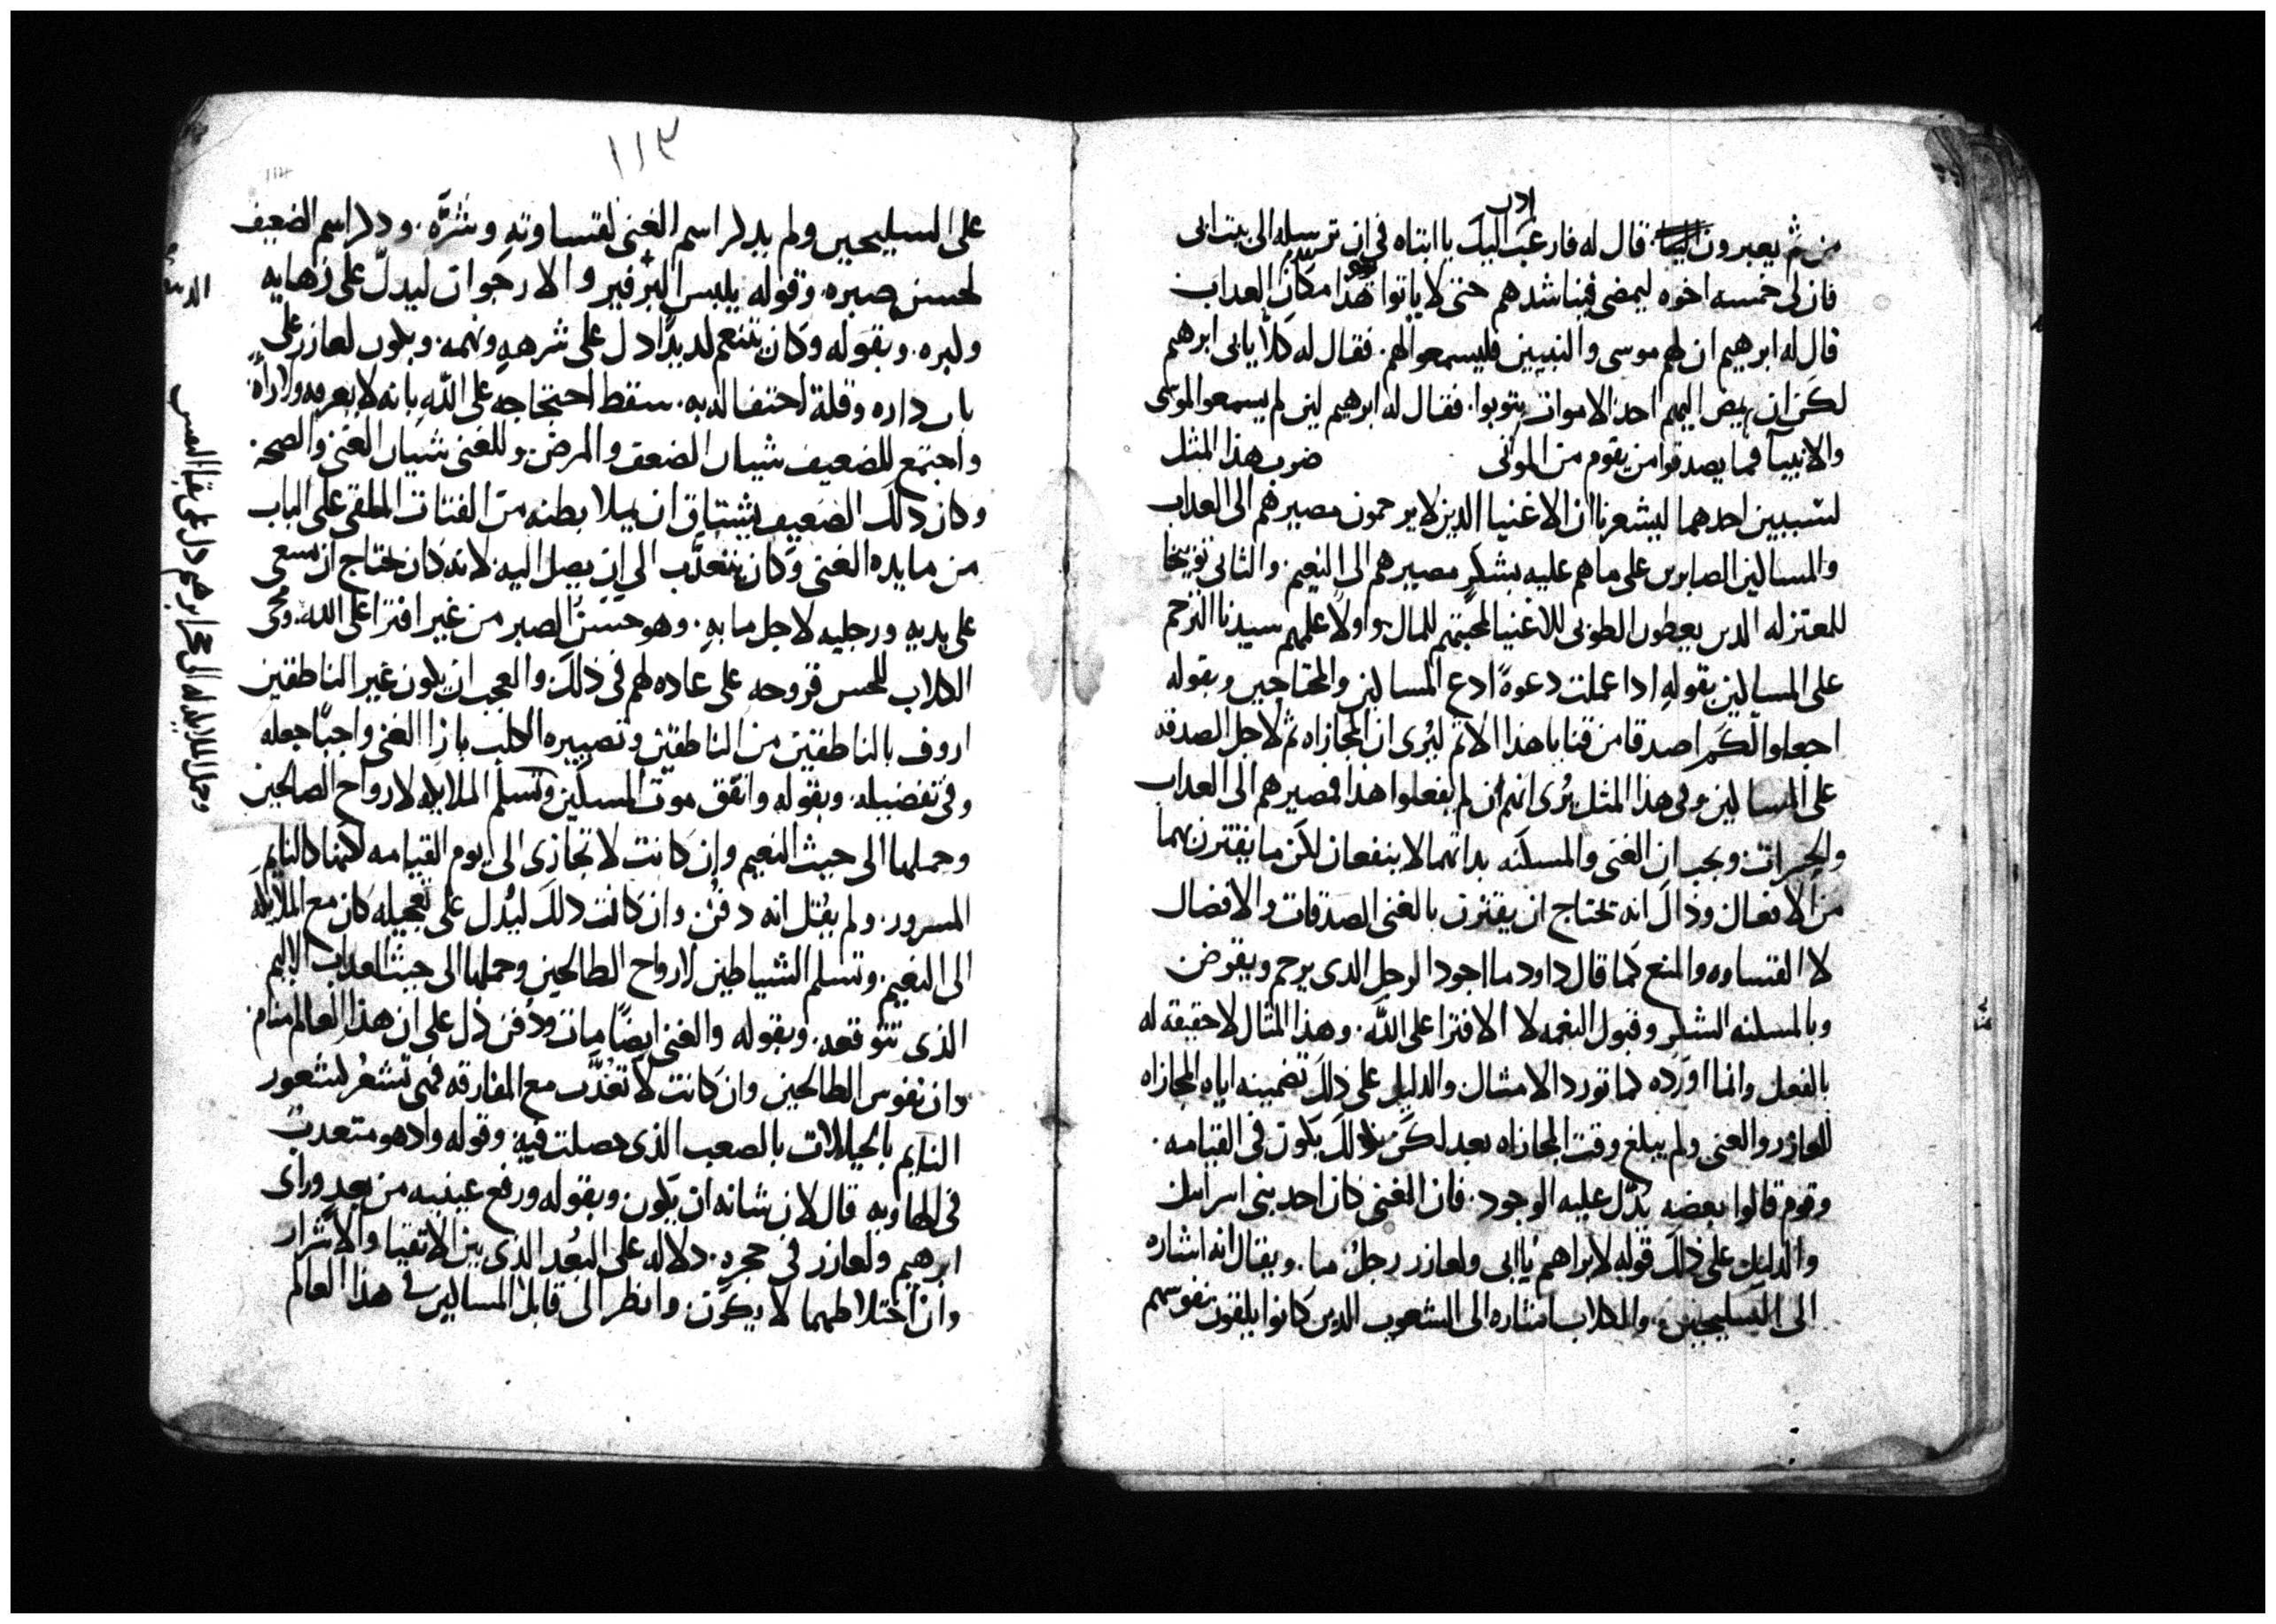 ادن
من ثم يعبرون الينا. قال له فارغب اليك يا ابتاه في ان ترسله الى بيت ابي
فان لي خمسه اخوه ليمضي فيناشدهم حتى لا ياتوا هذا مكان العداب
قال له ابرهيم ان لهم موسى والنبيين فليسمعوا لهم. فقال له كلا يابي ابرهيم
لكن ان يمض اليهم احد الاموات يتوبوا. فقال له ابرهيم لين لم يسمعوا لموسى
والانبيآ فما يصدقوا من يقوم من الموتى ضرب هذا المثل
لسببين احدهما ليشعرنا ان الاغنيا الدين لا يرحمون مصيرهم الى العداب
والمساكين الصابرين على ما هم عليه بشكرٍ مصيرهم الى النعيم. والثاني توبيخا
للمعتزله الدين يعطون الطوبى للاغنيا لمحبتهم للمال. واولًا علمهم سيدنا الترحم
على المساكين بقوله ادا عملت دعوةً ادع المساكين والمحتاجين وبقوله
اجعلوا لكم اصدقا من قنايا هذا الاثم ليُرى ان المجازاه ثم لاجل الصدقه
على المساكين وفي هذا المثل يُرى انهم ان لم يفعلوا هذا فمصيرهم الى العداب
والحسرات. ويجب ان الغنى والمسكنه بداتهما لا ينفعان لكن ما يقترن بهما
من الافعال وذاك انه يحتاج ان يقترن بالغنى الصدقات والافضال
لا القساوه والمنع كما قال داود ما اجود الرجل الدى يرحم ويقرض
وبالمسكنه الشكر وقبول النعمه لا الافترا على الله. وهذا المثال لا حقيقه له
بالفعل وانما اورده كما تورد الامثال والدليل على ذلك تضمينه اياه المجازاه
للعازر والغنى ولم يبلغ وقت المجازاه بعد لكن ذلك يكون في القيامه.
وقوم قالوا بعضه يدل عليه الوجود. فان الغنى كان احد بني اسرائيل
والدليل على ذلك قوله لابراهيم يا ابى ولعازر رجلٌ ما. ويقال انه اشاره
الى السليحيين. والكلاب اشاره الى الشعوب الدين كانوا يلقون نفوسهم
١١٣
على السليحيين ولم يدكر اسم الغنى لقساوته وشرّه. ودكر اسم الضعيف
لحسن صبره. وقوله يلبس البرفير والارجوان ليدلّ على زهايه
وكبره. وبقوله وكان يتنعم لديدًا دل على شرهه ونهمه. وبكون لعازر على
باب داره وقلة احتفاله به. سقط احتجاجه على الله بانه لا يعرفه ولا رأه.
واجتمع للضعيف شيان الضعف والمرض. وللغنى شيان الغنى والصحه.
وكان دلك الضعيف يشتاق ان يملا بطنه من الفتات الملقى على الباب
من مايده الغنى وكان يتعدّب الى ان يصل اليه. لانه كان يحتاج ان يسعى
على يديه ورجليه لاجل ما به. وهو حسن الصبر من غير افترا على الله. ومجى
الكلاب للحس قروحه على عاده لهم في ذلك. والعجب ان يكون غير الناطقين
اروف بالناطقين من الناطقين وتصييره الكلب بازا الغنى واجبًا جعله
وفي تفضيله. وبقوله واتفق موت المسكين وتسلم الملايكه لارواح الصالحين
وحملها الى حيث النعيم وان كانت لا تجازى الى يوم القيامه لكنها كالنايم
المسرور. ولم يقل انه دفن. وان كانت دلك ليدل على تعجيله كان مع الملايكه
الى النعيم. وتسلم الشياطين لارواح الطالحين وحملها الى حيث العداب الاليم
الذى تتوقعه. وبقوله والغنى ايضًا مات ودُفن دل على ان هذا العالم منام.
وان نفوس الطالحين وان كانت لا تعُدَّب مع المفارقه فهى تشعر لشعور
النايم بالخيالات بالصعب الذى حصلت فيه. وقوله واد هو متعدب
في الهاويه قال لان شانه ان يكون. وبقوله ورفع عينيه من بعدٍ وراى
ابرهيم ولعازر في حجره. دلاله على البُعد الذي بين الاتقيا والاشرار
وان اختلاطهما لا يكون. وانظر الى قابل المساكين في هذا العالم